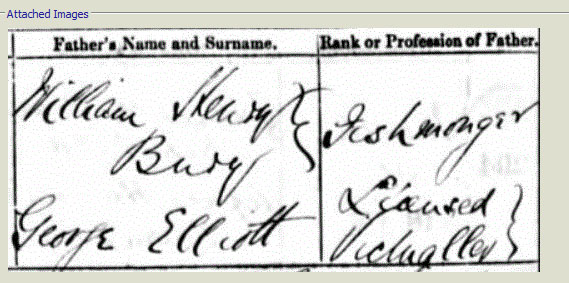 Attached Images
Father's Name and Surname. Rank or Profession of Father.
William Henry
Bury
Fishmonger
George Elliott
Licensed
Victualler